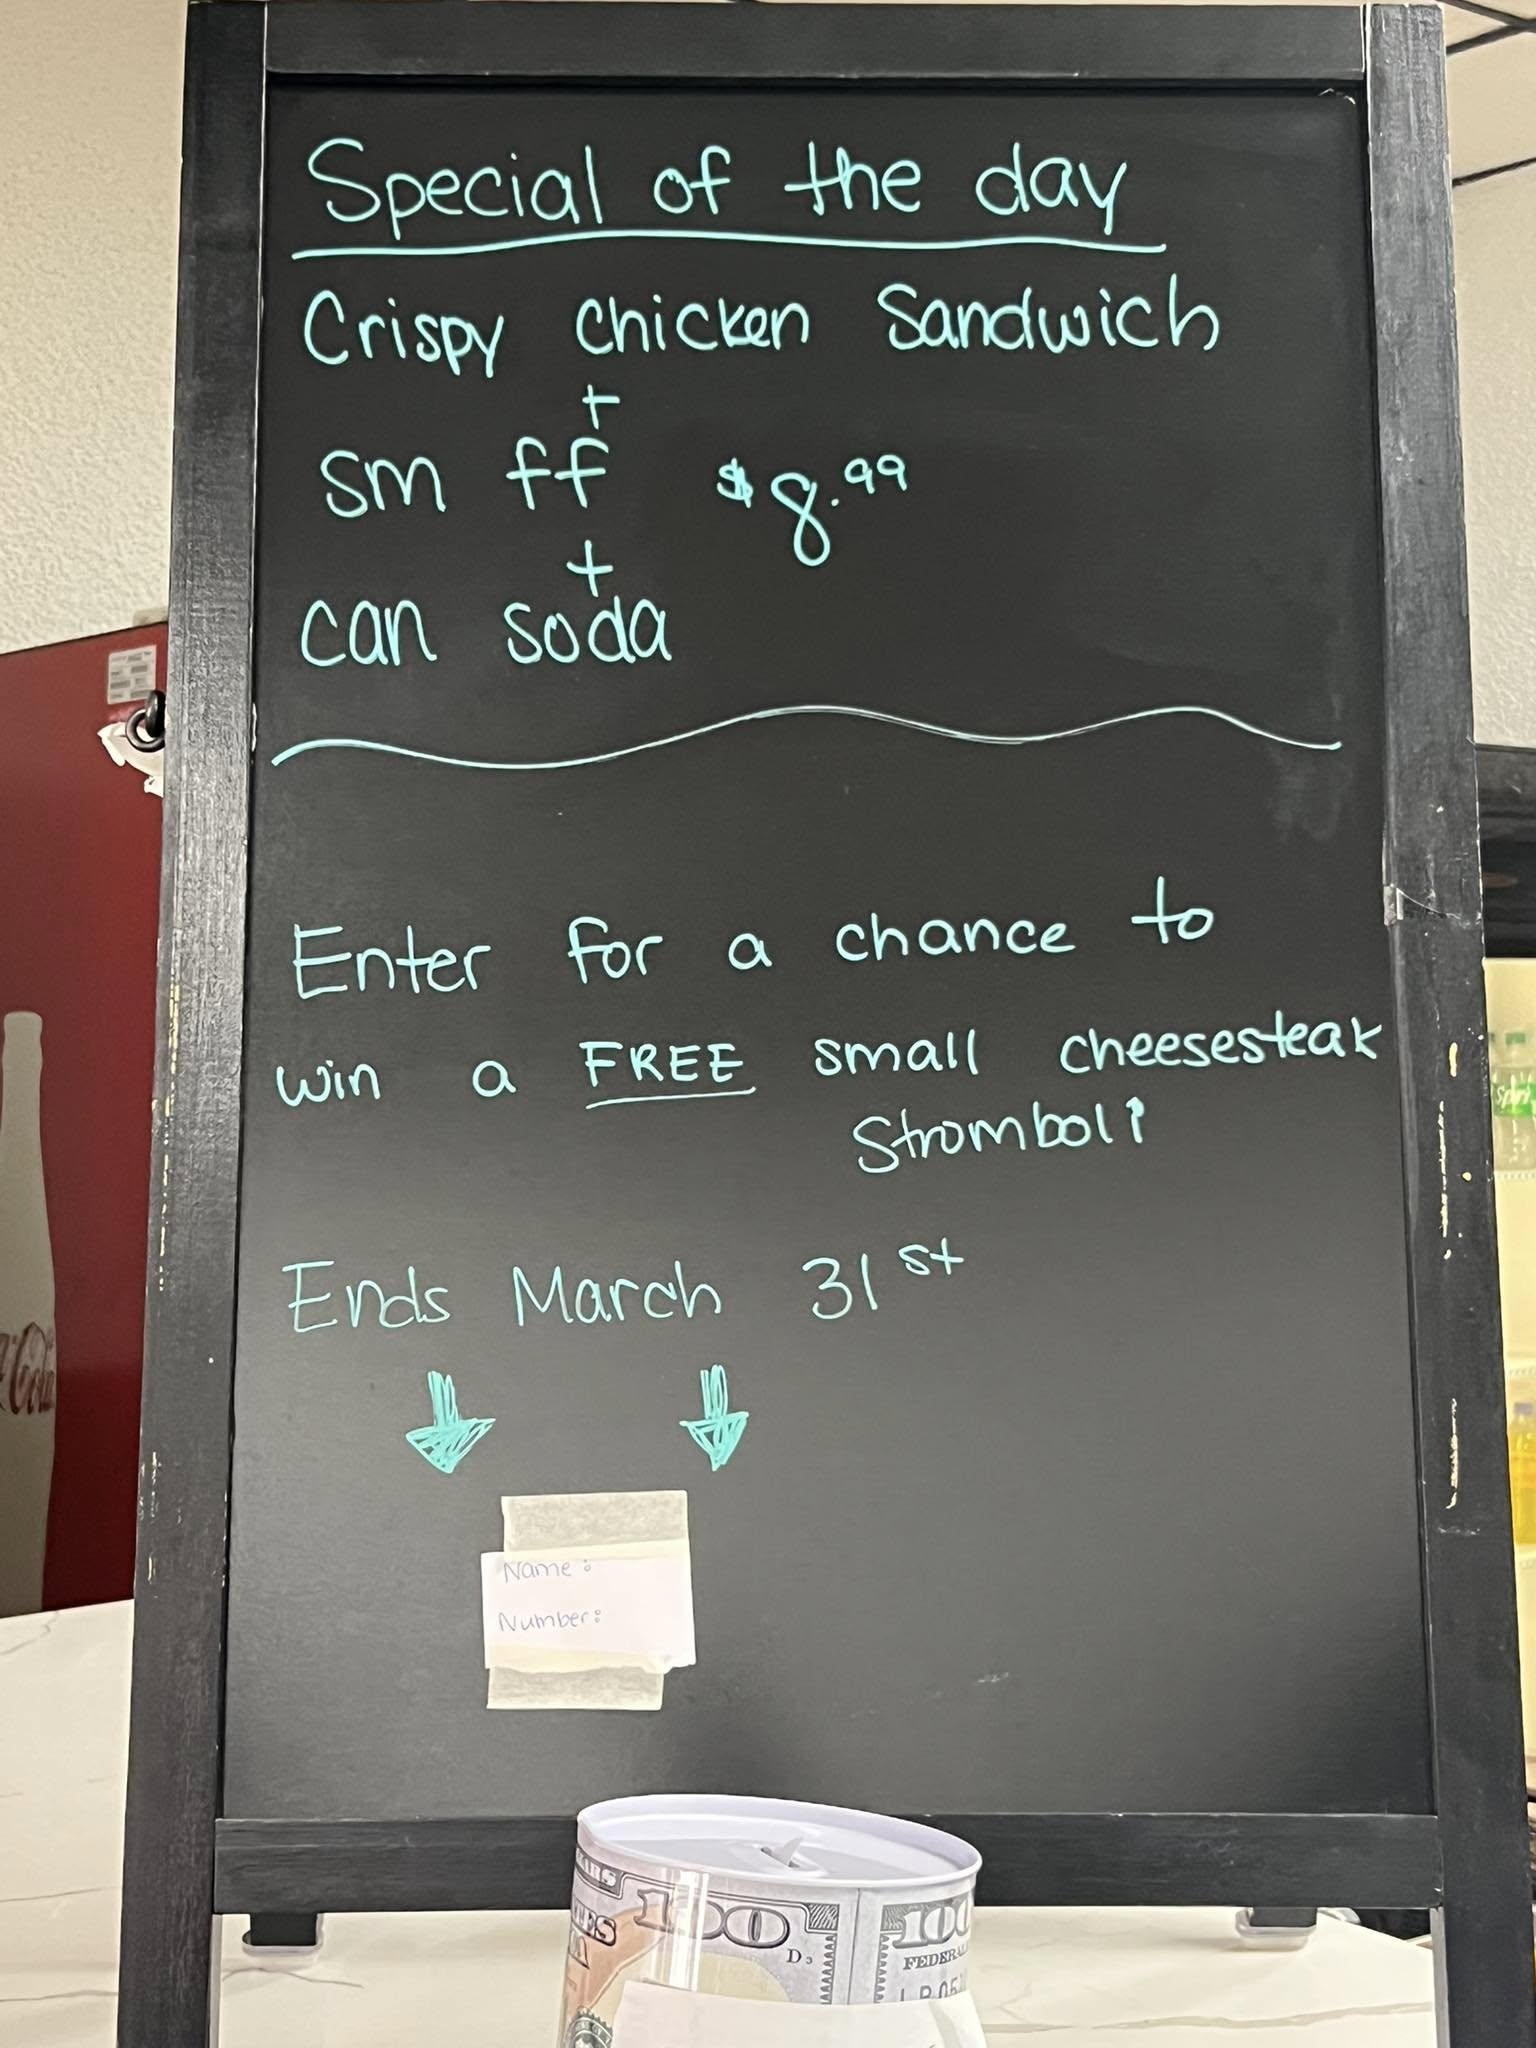 Special of the day
Crispy Chicken Sandwich
+
sm ff $8.99
+
can soda
Enter for a chance to
win a FREE small cheesesteak
Stromboli
Ends March 31st
Name:
Number:
100
100
D3
FEDERAL
Cola